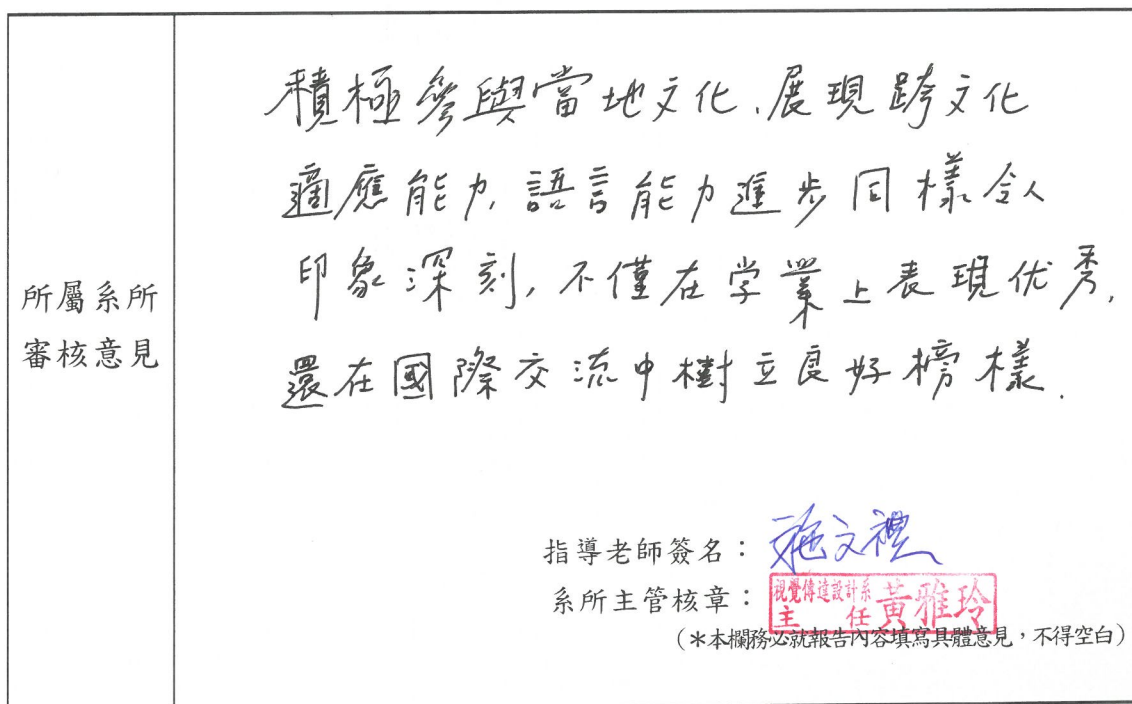 所屬系所
審核意見
積極參與當地文化、展現跨文化
適應能力, 語言能力進步同樣令人
印象深刻, 不僅在学業上表現优秀,
還在國際交流中樹立良好榜樣.
指導老師簽名：施文禮
系所主管核章：視覺傳達設計系主任黃雅玲
（＊本欄務必就報告內容填寫具體意見，不得空白）